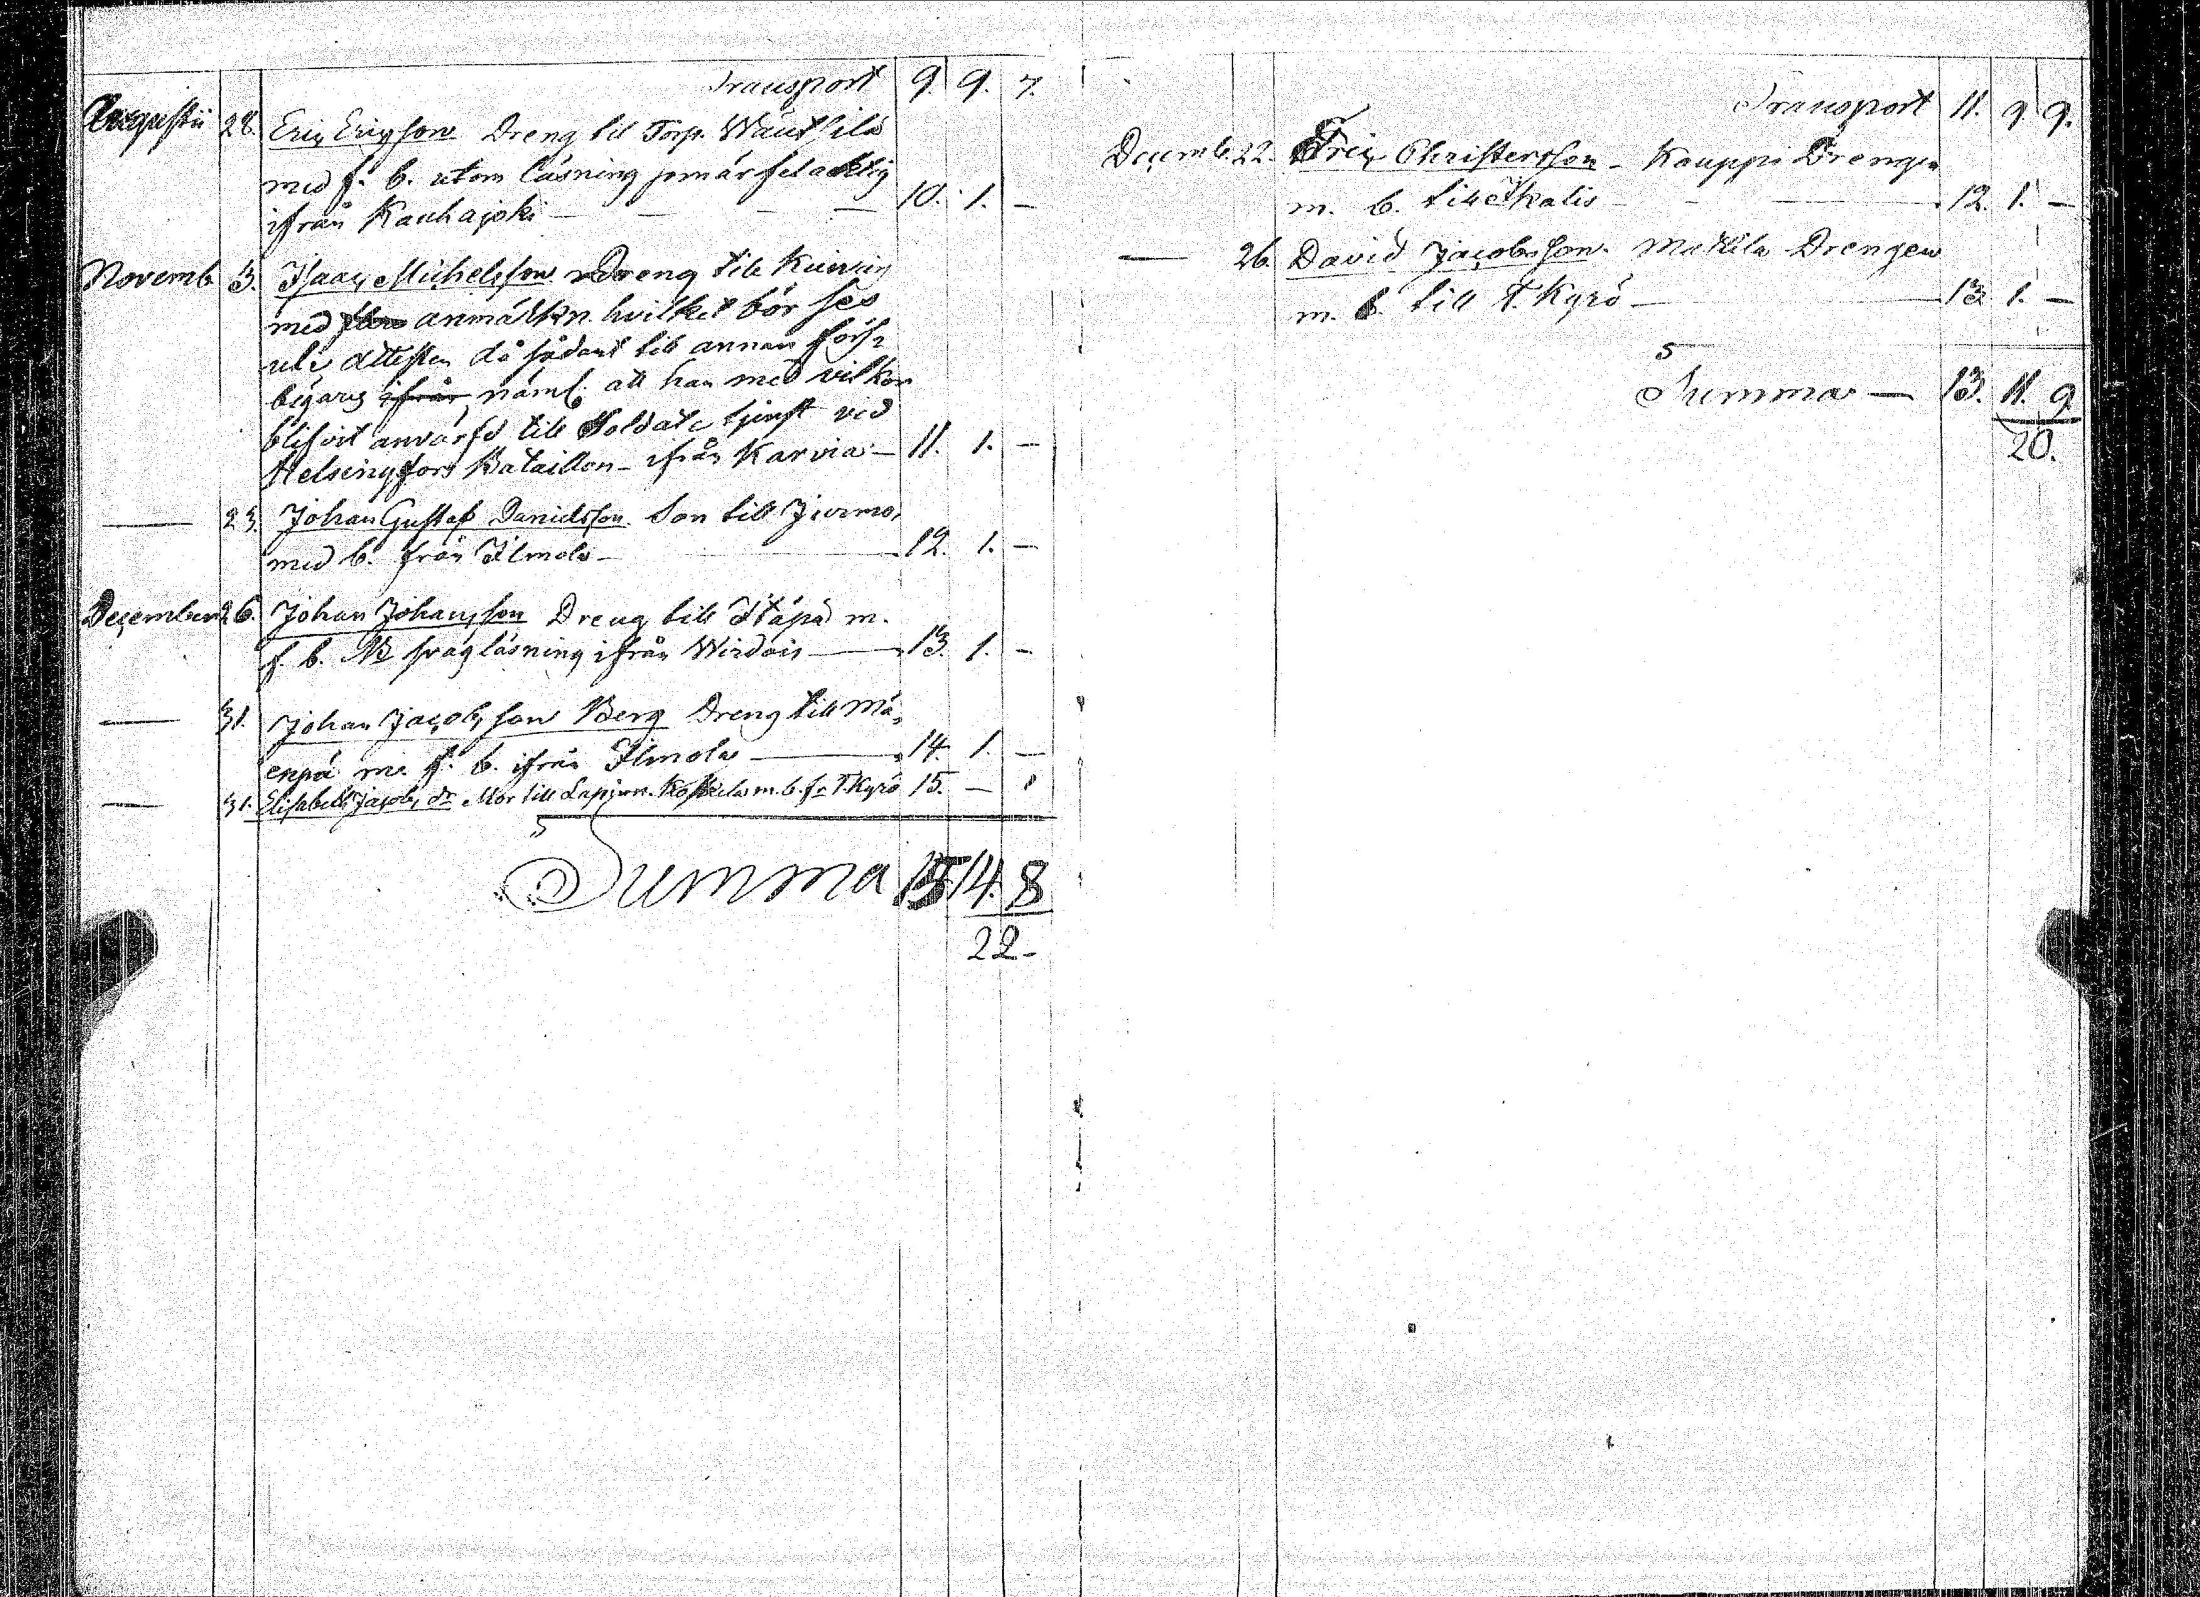 Transport 9. 9. 7.
Augustii 28. Eric Ericsson Dreng till Torp. Wäntsilä
med f. b. utom läsning som är felacktig
ifrån Kauhajoki — — — — 10. 1. —
Novemb. 3. Isaac Michelsson Dreng till
med anmälkn. hvilket bör ses
uti attesten då sådant till annan förs:
begäres ifrån, näml. att han med vilkor
blifvit anvärfd till Soldats tjenst vid
Helsingfors Bataillon – ifrån Karvia — 11. 1. —
— 23. Johan Gustaf Danielsson. Son till Jurmo,
med b. från Ilmola — 12. 1. —
December 26. Johan Johansson Dreng till m.
f. b. NB svag läsning ifrån Wirdois — 13. 1. —
— 31. Johan Jacobsson Berg Dreng till Mä,
enpä m. f. b. ifrån Ilmola — 14. 1. —
— 31. Elisabeth Jacobs dr Mor till m. b. fr T. Kyrö 15. — 1
Summa 15 14. 8
22 –
Transport 11. 9. 9.
Decemb. 22. Eric Christersson – Kauppi Drengen
m. b. till Ikalis — 12. 1. —
— 26. David Jacobsson. Mattila Drengen
m. b. till T. Kyrö — 13. 1. —
Summa — 13. 11. 9
20.